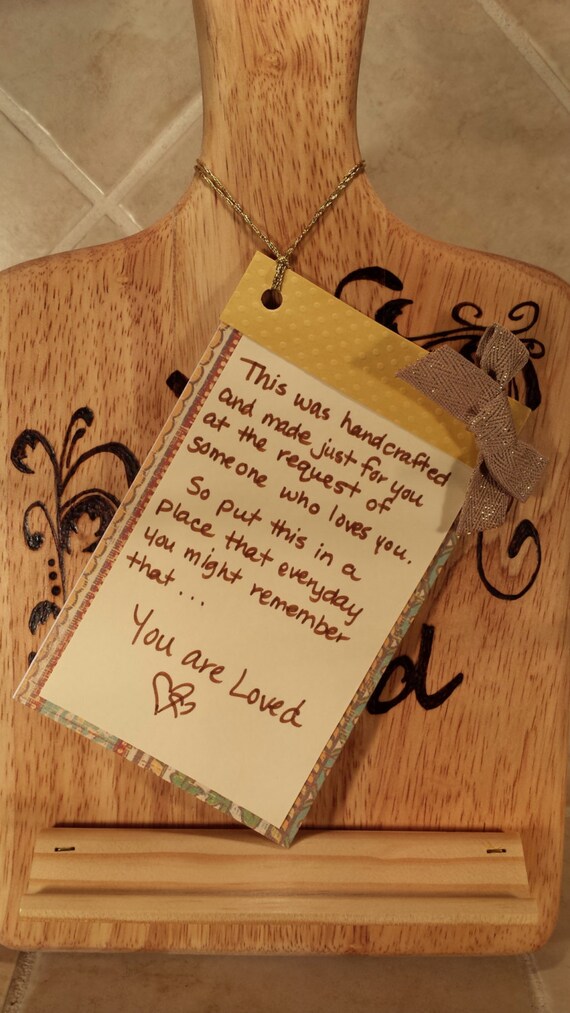 This was handcrafted
and made just for you
at the request of
someone who loves you.
So put this in a
place that everyday
you might remember
that...
You are Loved